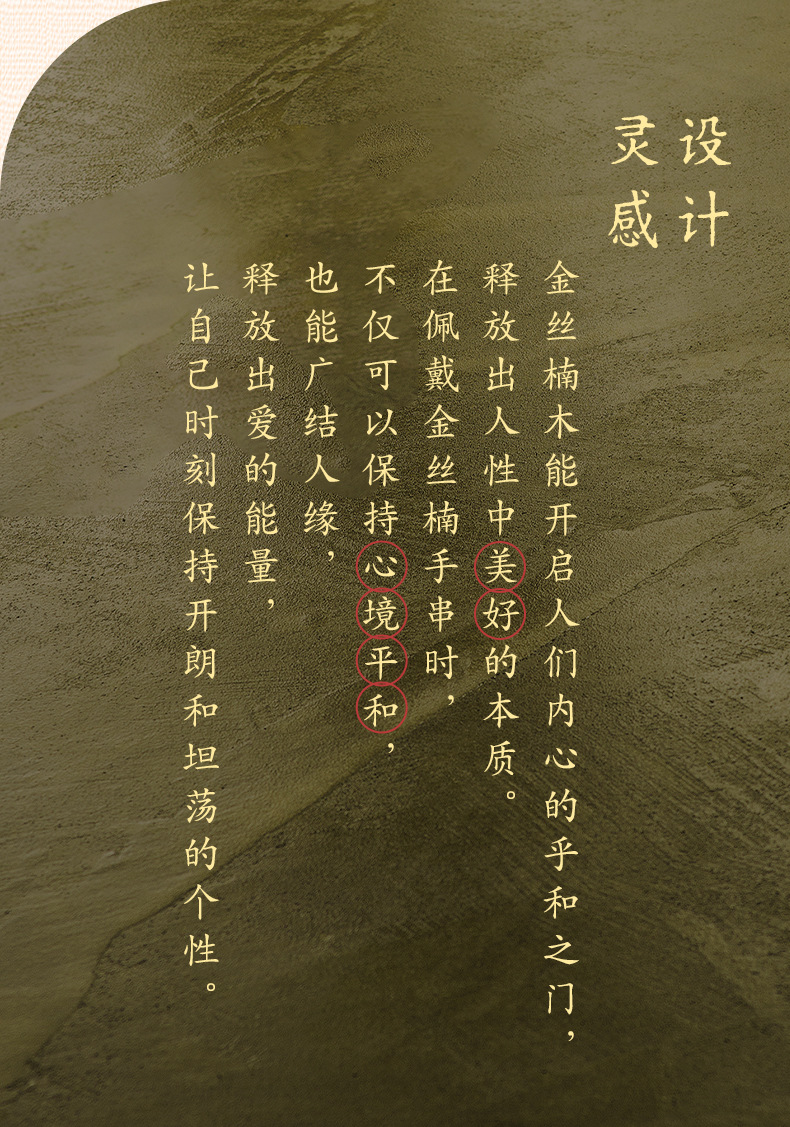 设计
灵感
金丝楠木能开启人们内心的乎和之门，
释放出人性中美好的本质。
在佩戴金丝楠手串时，
不仅可以保持心境平和，
也能广结人缘，
释放出爱的能量，
让自己时刻保持开朗和坦荡的个性。